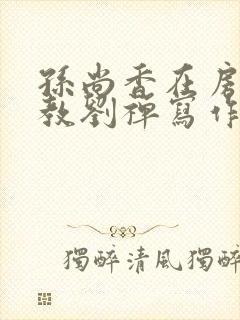 孫尚香在房
教劉禪寫作
獨醉清風獨醉